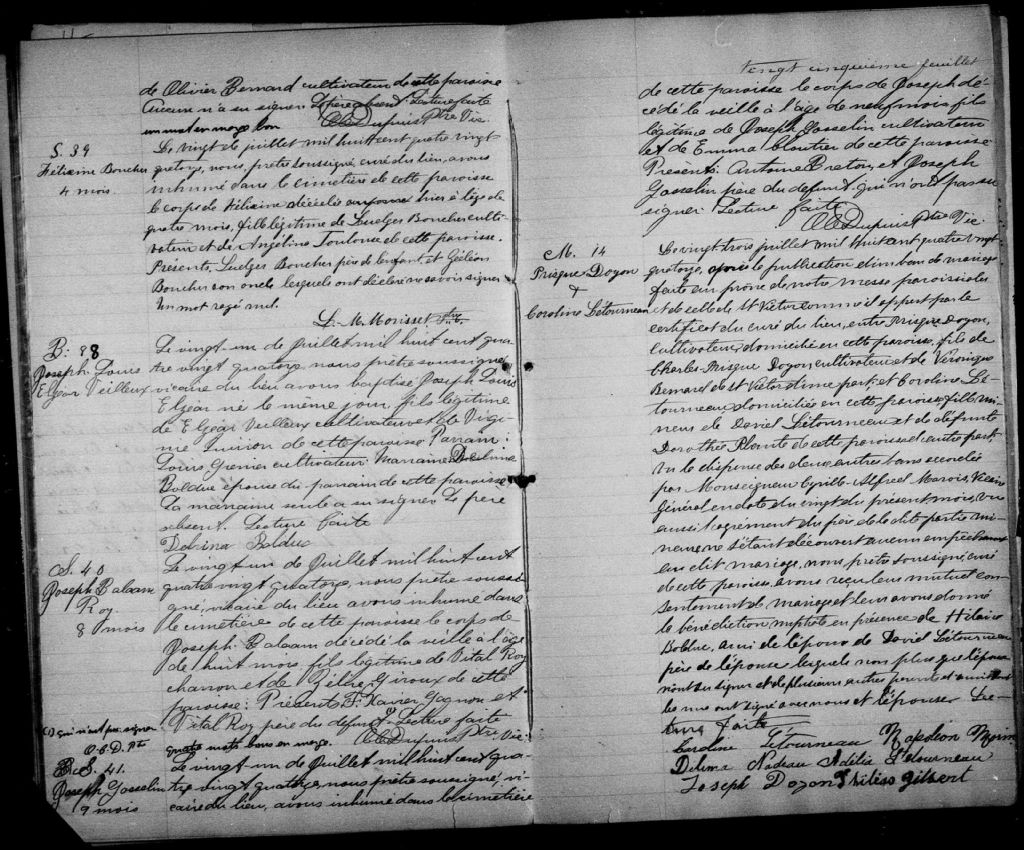 de Olivier Bernard cultivateur de cette paroisse
Aucun n'a su signer. Le père absent. Lecture faite
un mot en marge bon O.C. Dupuis Ptre Vic.
S. 39
Félixine Boucher
4 mois
Le vingt de juillet mil huit cent quatre vingt
quatorze, nous, prêtre soussigné, curé du lieu, avons
inhumé dans le cimetière de cette paroisse
le corps de décédée hier à l'âge de
quatre mois, fille légitime de Ludger Boucher culti-
vateur et de Angélina Toulouse de cette paroisse.
Présents, Ludger Boucher père de l'enfant, et Gédéon
Boucher son oncle lesquels ont déclaré ne savoir signer
Un mot rayé nul.
L. M. Morisset Ptre
B. 98
Joseph Louis
Elgéar Veilleux
Le vingt-un de Juillet mil huit cent qua-
tre vingt quatorze, nous prêtre soussigné
vicaire du lieu avons baptisé Joseph Louis
Elgéar né le même jour fils légitime
de Elgéar Veilleux cultivateur et de Virgi-
nie Quirion de cette paroisse Parrain:
Louis Grenier cultivateur. Marraine Delvina
Bolduc épouse du parrain de cette paroisse
La marraine seule a su signer. Le père
absent. Lecture faite
Delvina Bolduc
S. 40
Joseph Balaam
Roy
8 mois
Le vingt un de Juillet mil huit cent
quatre vingt quatorze, nous prêtre soussi-
gné, vicaire du lieu avons inhumé dans
le cimetière de cette paroisse le corps de
Joseph Balaam décédé la veille à l'âge
de huit mois fils légitime de Vital Roy
charron et de Zélire Giroux de cette
paroisse: Présents F. Xavier Gagnon et
Vital Roy père du défunt. Lecture faite
(1) qui n'ont pu signer
O.C.D. Ptr
quatre mots bons en marge. O.C. Dupuis Ptre Vic.
S. 41.
Joseph Gosselin
9 mois
Le vingt-un de Juillet mil huit cent qua-
tre vingt quatorze, nous prêtre soussigné, vi-
caire du lieu, avons inhumé dans le cimetière
Vingt cinquième feuillet
de cette paroisse le corps de Joseph dé-
cédé la veille à l'âge de neuf mois fils
légitime de Joseph Gosselin cultivateur
et de Emma Cloutier de cette paroisse
Présents: Antoine Breton, et Joseph
Gosselin père du défunt, qui n'ont pas su
signer. Lecture faite
O.C. Dupuis Ptre Vic.
M. 14
Prisque Doyon
&
Caroline Létourneau
Le vingt-trois juillet mil huit cent quatre vingt
quatorze, après la publication d'un ban de mariage
faite au prône de notre messe paroissiale
et de celle de St Victor comme il appert par le
certificat du curé du lieu, entre Prisque Doyon,
cultivateur, domicilié en cette paroisse, fils de
Charles Prisque Doyon cultivateur et de Véronique
Bernard de St Victor d'une part; et Caroline Lé-
tourneau domiciliée en cette paroisse, fille mi-
neure de David Létourneau et de défunte
Dorothée Plante de cette paroisse d'autre part.
Vu la dispense des deux autres bans accordée
par Monseigneur Cyrille-Alfred Marois, Vicaire
Général en date du vingt du présent mois, vu
aussi l'agrément du père de la dite partie mi-
neure, ne s'étant découvert aucun empêchement
au dit mariage, nous, prêtre soussigné, curé
de cette paroisse, avons reçu leur mutuel con-
sentement de mariage et leur avons donné
la bénédiction nuptiale en présence de Hilaire
Bolduc, ami de l'époux et de David Létourneau
père de l'épouse lesquels non plus que l'époux
n'ont su signer et de plusieurs autres parents et amis dont
les uns ont signé avec nous et l'épouse. Lec-
ture faite
Caroline Létourneau Napoléon Morin
Délima Nadeau Adélia Létourneau
Joseph Doyon Philéas Gilbert